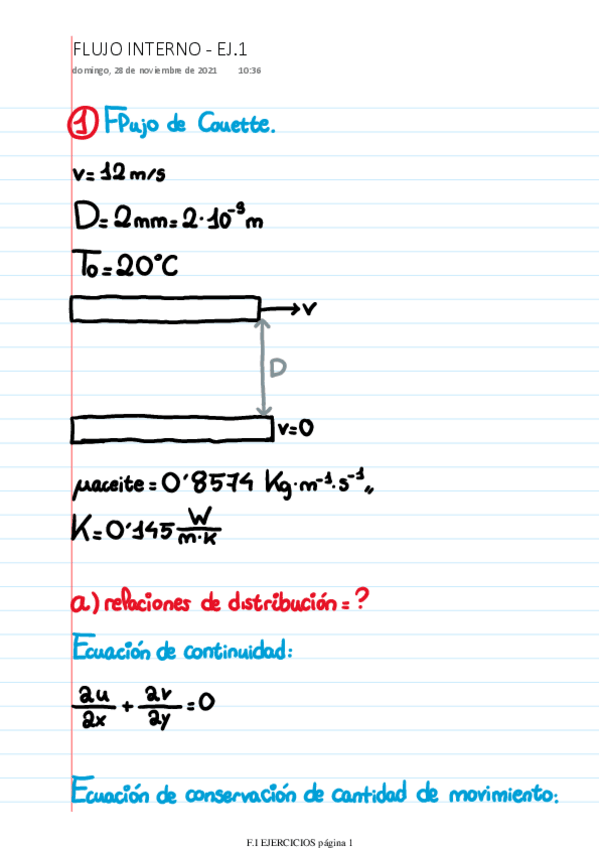 FLUJO INTERNO - EJ.1
domingo, 28 de noviembre de 2021 10:36
① Flujo de Couette.
v = 12 m/s
D = 2mm = 2·10⁻³ m
T₀ = 20°C
→ v
D
v=0
μaceite = 0'8574 Kg·m⁻¹·s⁻¹,,
K = 0'145 W/m·K
a) relaciones de distribución = ?
Ecuación de continuidad:
∂u/∂x + ∂v/∂y = 0
Ecuación de conservación de cantidad de movimiento:
F.I EJERCICIOS página 1